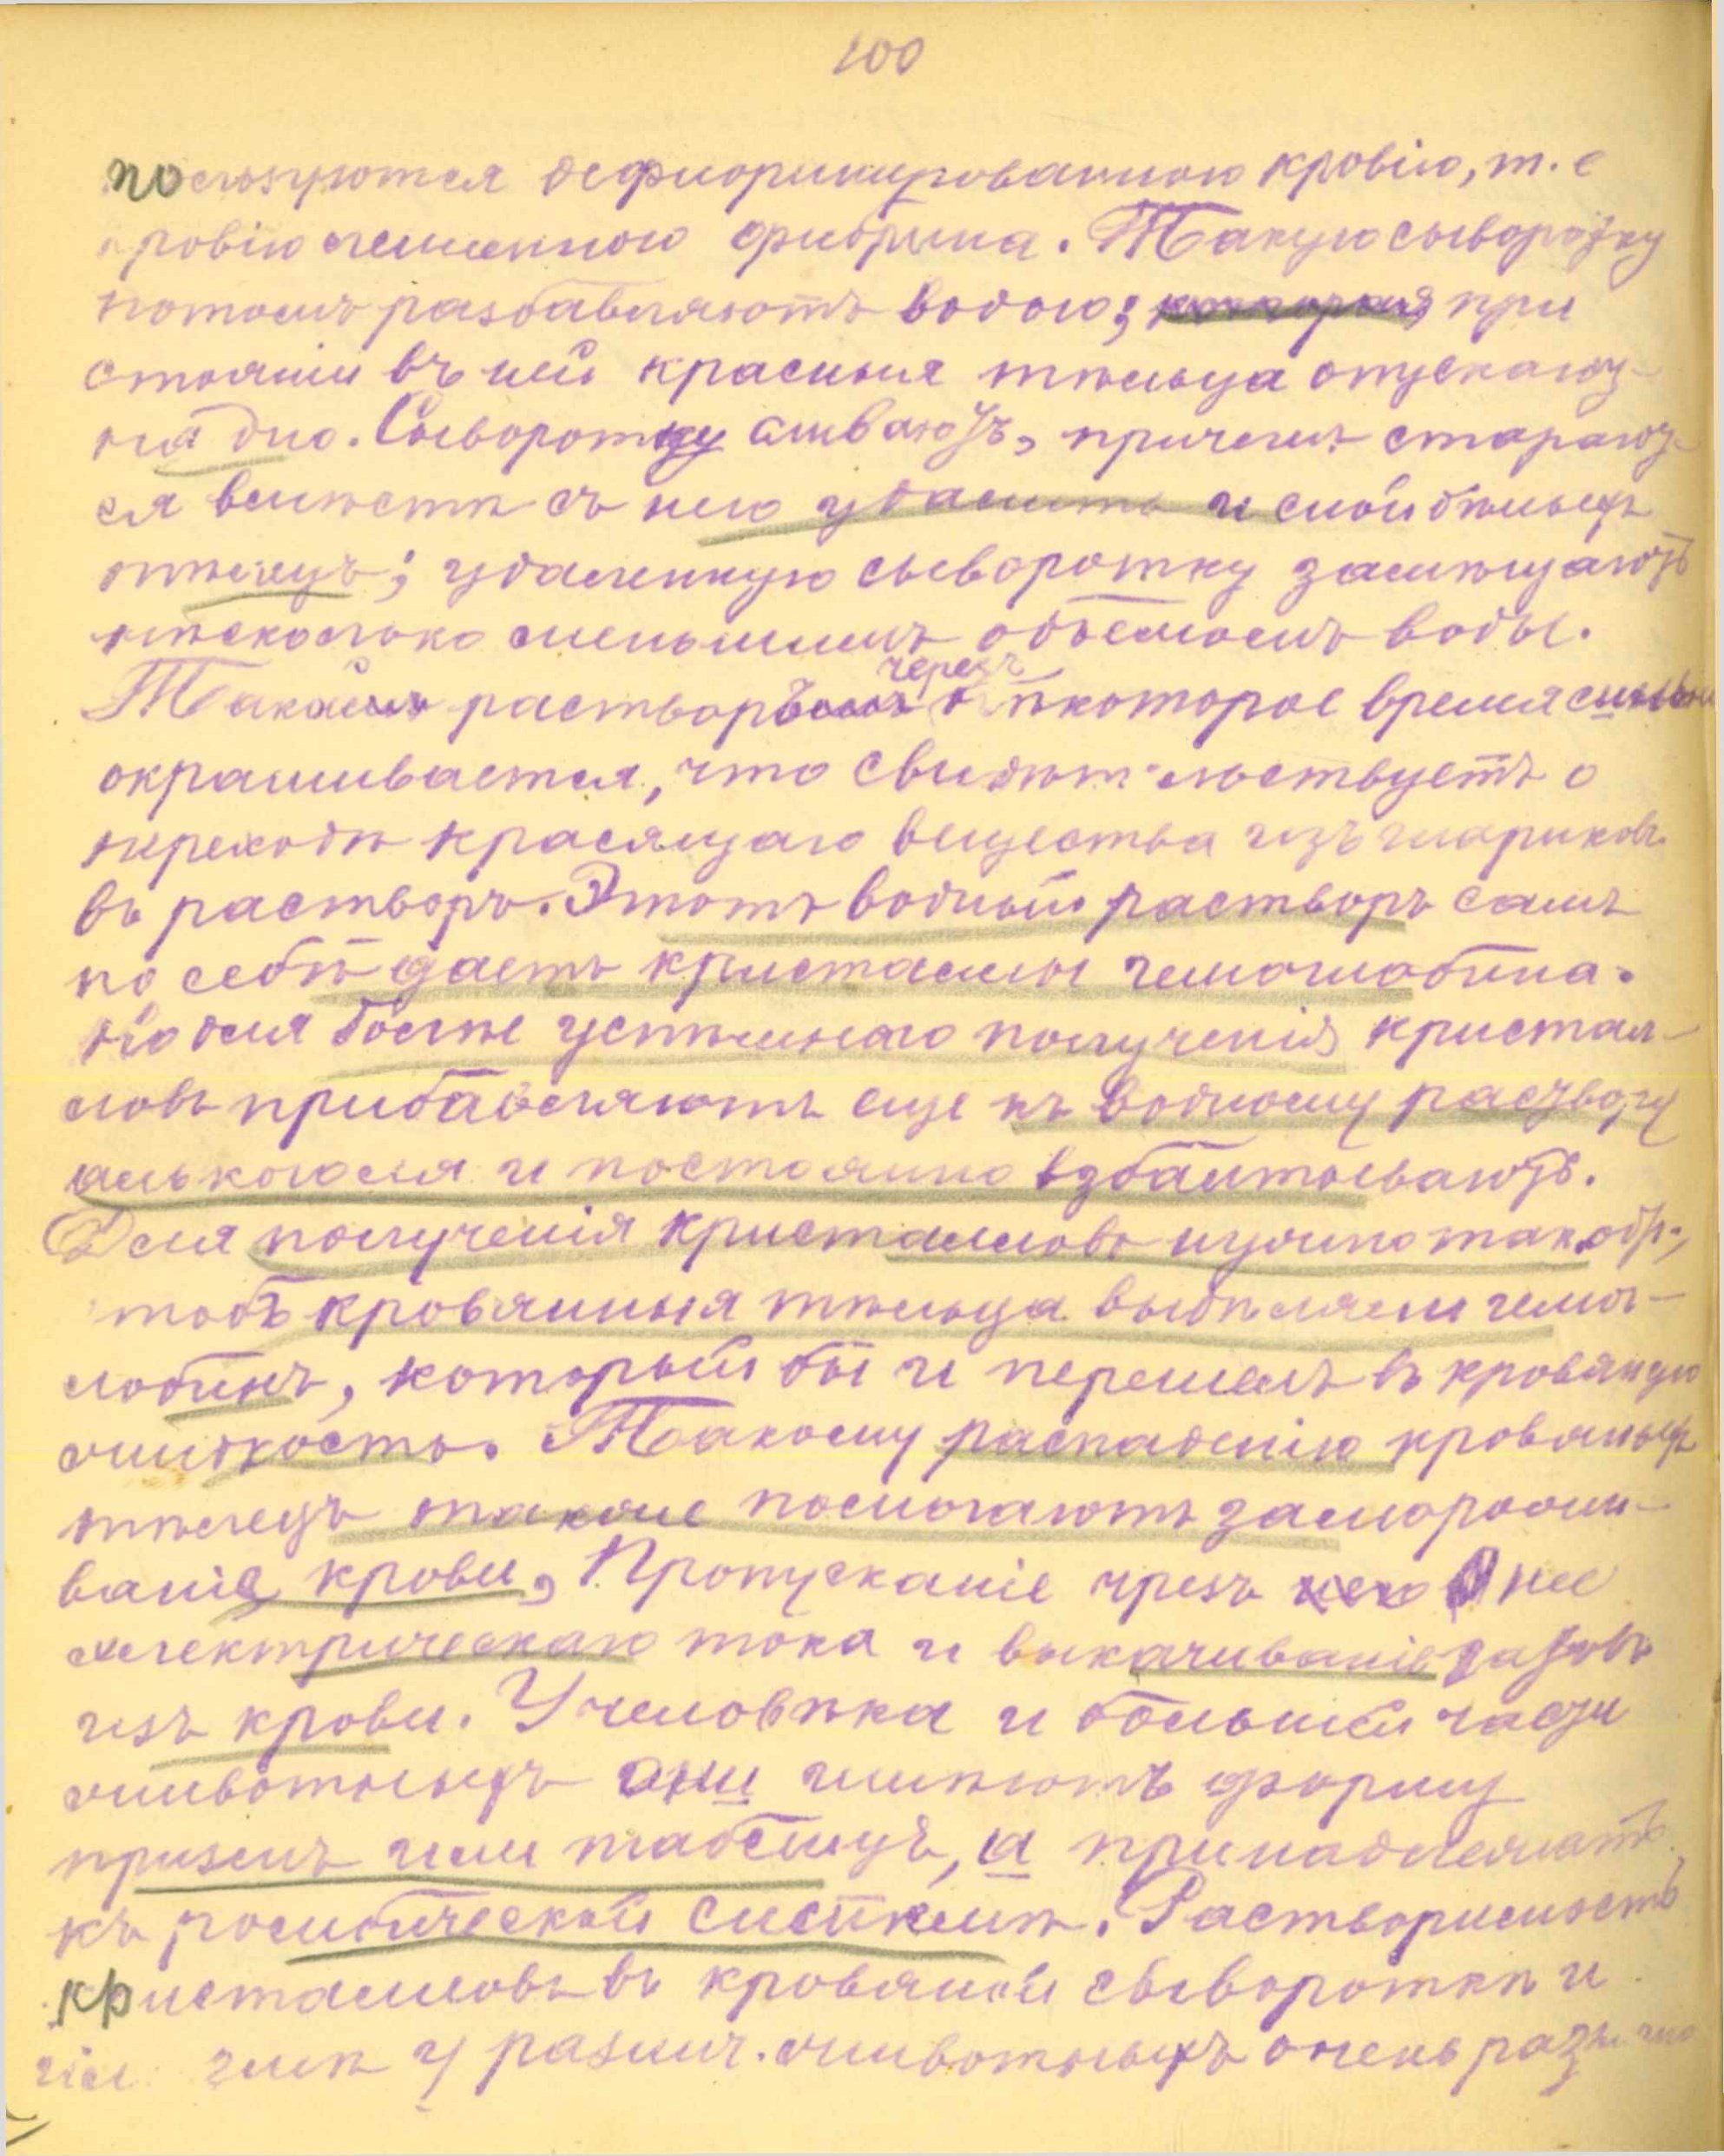 100
пользуются дефибринированною кровію, т. е
кровію лишенною фибрина. Такую сыворотку
потомъ разбавляютъ водою; которая, при
стояніи въ ней красныя тѣльца опускают-
на дно. Сыворотку сливаютъ, причемъ старают-
ся вмѣстѣ съ нею удалить и слой бѣлыхъ
тѣлецъ; удаленную сыворотку замѣщаютъ
нѣсколько меньшимъ объемомъ воды.
черезъ
растворъ нѣкоторое время сильно
окрашивается, что свидѣтельствуетъ о
переходѣ красящаго вещества изъ шариковъ
въ растворъ. Этотъ водный растворъ самъ
по себѣ даетъ кристаллы гемоглобина.
Но для болѣе успѣшнаго полученія кристал-
ловъ прибавляютъ еще къ водному раствору
алькоголя и постоянно взбалтываютъ.
Для полученія кристалловъ нужно так. обр.,
чтобъ кровянныя тѣльца выдѣляли гемог-
лобинъ, который бы и перешелъ въ кровяную
жидкость. Такому распаденію кровяныхъ
тѣлецъ также помогаютъ заморажи-
ваніе крови, Пропусканіе чрезъ нее
електрическаго тока и выкачиваніе газовъ
изъ крови. У человѣка и большей части
животныхъ они имѣютъ форму
призмъ или таблицъ, а принадлежатъ
къ ромбической системѣ. Растворимость
кристалловъ въ кровяной сывороткѣ и
у различ. животныхъ очень различно